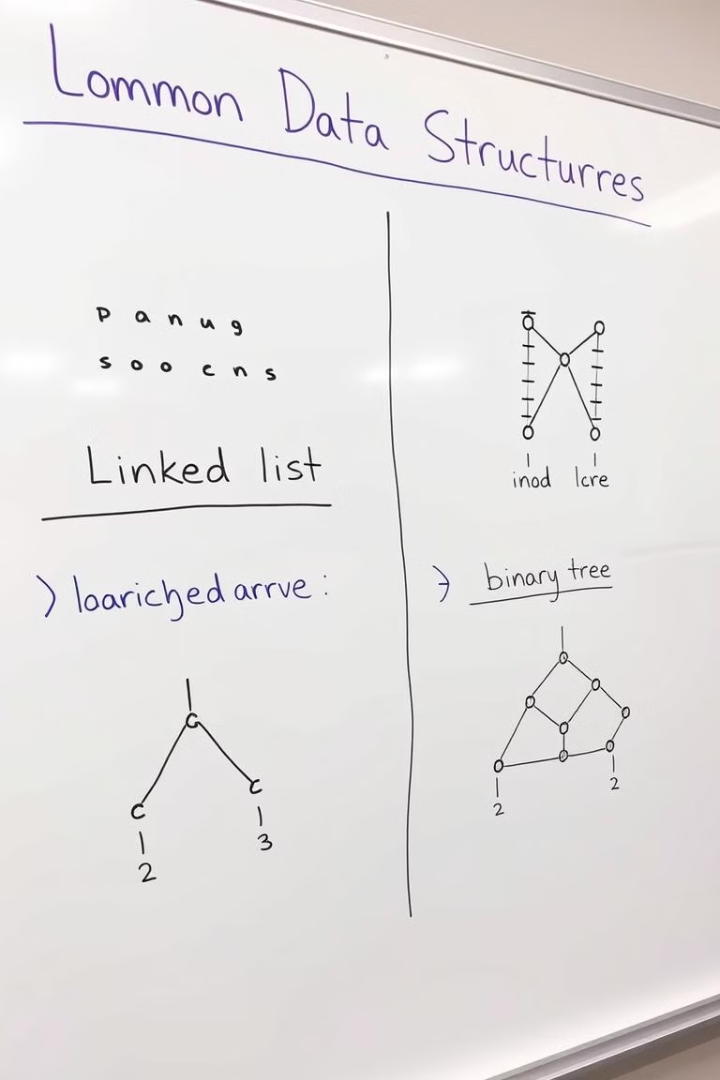 Lommon Data Structurres
panug
soo cns
Linked list
) loariched arrve:
G
C C
2 3
inod lcre
binary tree
2 2